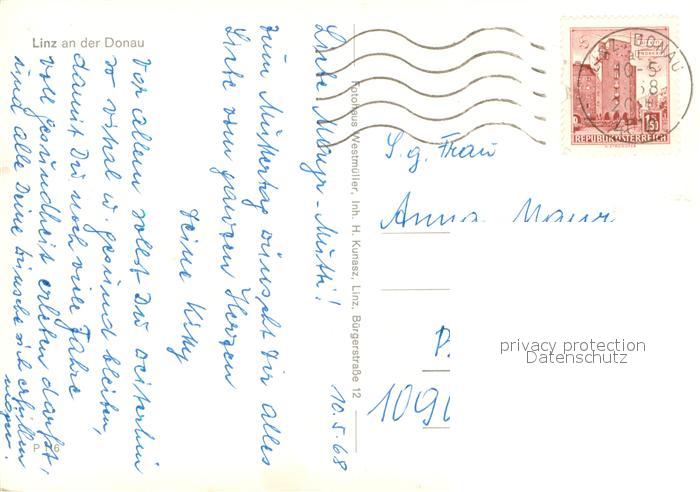 Linz an der Donau
Liebe Mayr-Mutti!
zum Muttertag wünscht Dir alles
Liebe vom ganzen Herzen
Deine Kitty
Vor allem sollst Du weiterhin
so vital u. gesund bleiben,
damit Du noch viele Jahre
voll Gesundheit erleben darfst,
und alle Deine Wünsche sich erfüllen
mögen.
10.5.68
P.
Fotohaus Westmüller, Inh. H. Kunasz, Linz, Bürgerstraße 12
DONAU
10-5
68
20
REPUBLIK ÖSTERREICH
S.g. Frau
Anna Mayr
P.
1090
privacy protection
Datenschutz